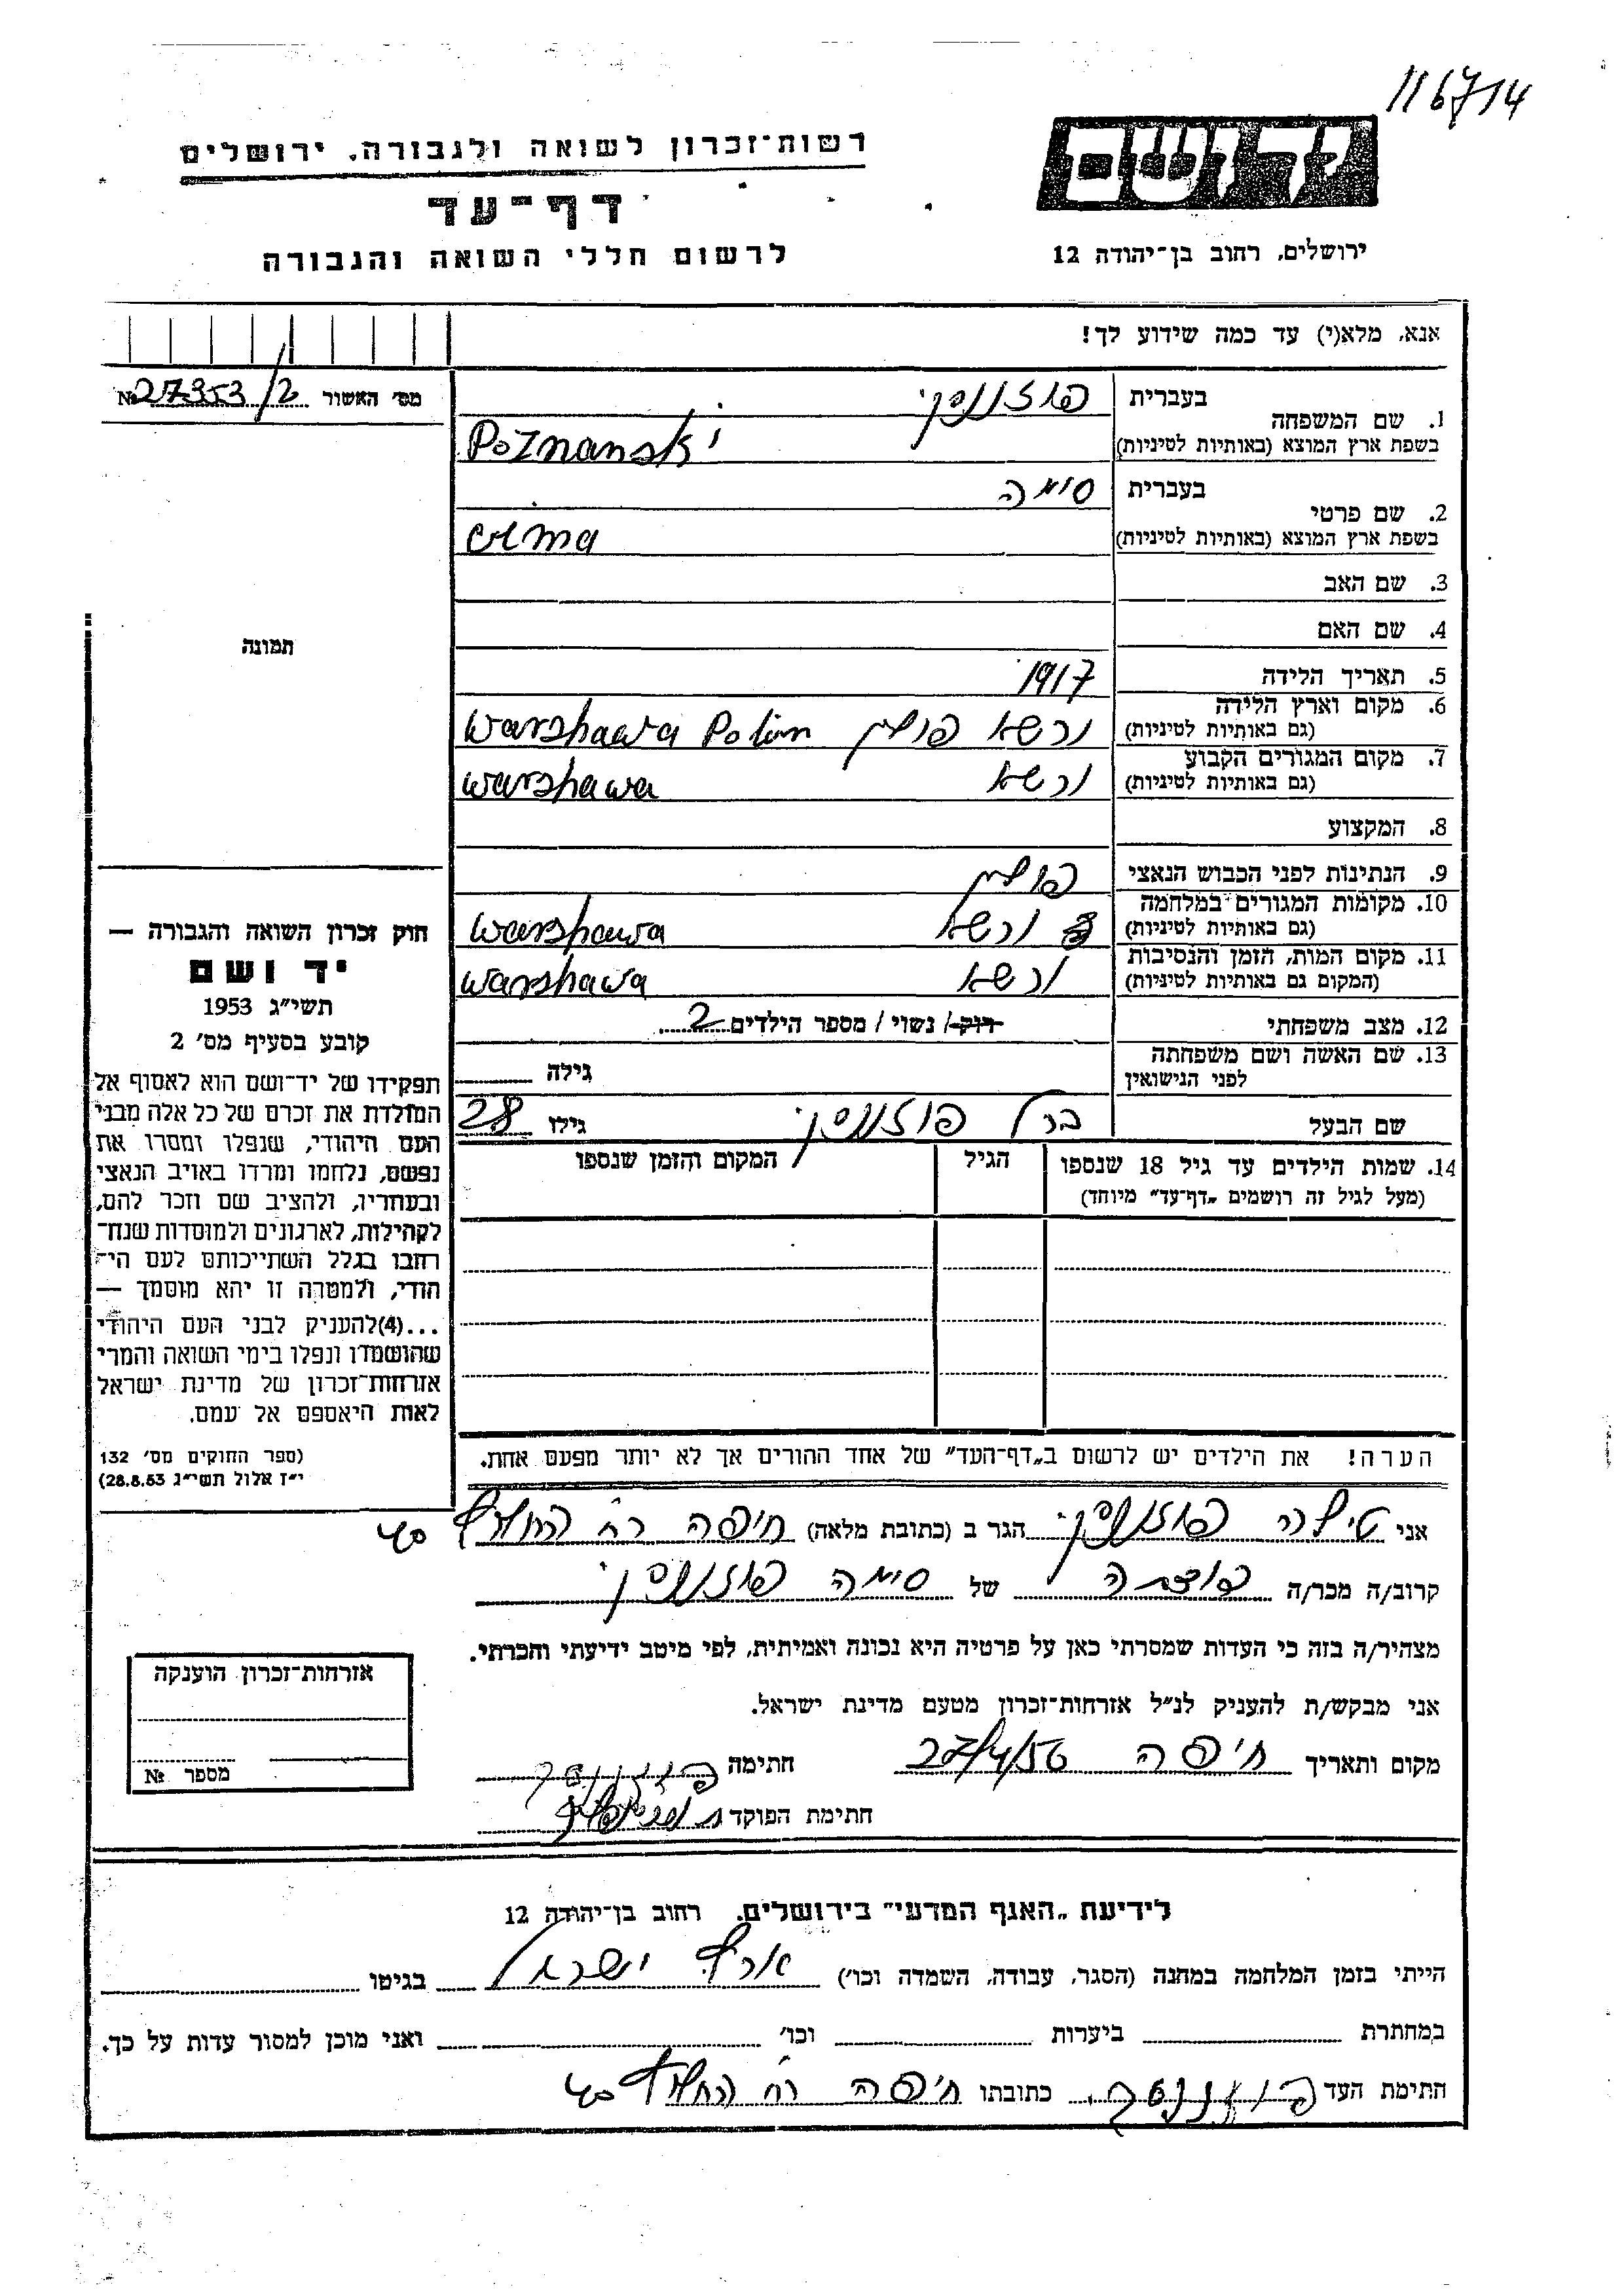 116714
יד ושם
רשות־זכרון לשואה ולגבורה, ירושלים
דף־עד
לרשום חללי השואה והגבורה
ירושלים, רחוב בן־יהודה 12
אנא, מלא(י) עד כמה שידוע לך!
מס׳ האשור № 27353/2
תמונה
1. שם המשפחה
בעברית פוזננסקי
בשפת ארץ המוצא (באותיות לטיניות) Poznanski
2. שם פרטי
בעברית סימה
בשפת ארץ המוצא (באותיות לטיניות)
3. שם האב
4. שם האם
5. תאריך הלידה 1917
6. מקום וארץ הלידה
(גם באותיות לטיניות) ורשא פולין Warshawa Polin
7. מקום המגורים הקבוע
(גם באותיות לטיניות) ורשא warshawa
8. המקצוע
9. הנתינות לפני הכבוש הנאצי פולין
10. מקומות המגורים במלחמה
(גם באותיות לטיניות) ורשא Warshawa
11. מקום המות, הזמן והנסיבות
(המקום גם באותיות לטיניות) ורשא warshawa
12. מצב משפחתי רוק / נשוי / מספר הילדים 2
13. שם האשה ושם משפחתה
לפני הנישואין גילה
שם הבעל ברל פוזננסקי גילו 28
14. שמות הילדים עד גיל 18 שנספו הגיל המקום והזמן שנספו
(מעל לגיל זה רושמים „דף־עד״ מיוחד)
הערה! את הילדים יש לרשום ב„דף־העד״ של אחד ההורים אך לא יותר מפעם אחת.
חוק זכרון השואה והגבורה —
יד ושם
תשי״ג 1953
קובע בסעיף מס׳ 2
תפקידו של יד־ושם הוא לאסוף אל
המולדת את זכרם של כל אלה מבני
העם היהודי, שנפלו ומסרו את
נפשם, נלחמו ומרדו באויב הנאצי
ובעוזריו, ולהציב שם וזכר להם,
לקהילות, לארגונים ולמוסדות שנח־
רחבו בגלל השתייכותם לעם הי־
הודי, ולמטרה זו יהא מוסמך —
...(4)להעניק לבני העם היהודי
שהושמדו ונפלו בימי השואה והמרי
אזרחות־זכרון של מדינת ישראל
לאות היאספם אל עמם.
(ספר החוקים מס׳ 132
י״ז אלול תשי״ג 28.8.53)
אני טילה פוזננסקי הגר ב (כתובת מלאה) חיפה רח החלוץ 40
קרוב/ה מכר/ה של סימה פוזננסקי
מצהיר/ה בזה כי העדות שמסרתי כאן על פרטיה היא נכונה ואמיתית, לפי מיטב ידיעתי והכרתי.
אני מבקש/ת להעניק לנ״ל אזרחות־זכרון מטעם מדינת ישראל.
מקום ותאריך חיפה 27/4/56 חתימה
חתימת הפוקד
אזרחות־זכרון הוענקה
מספר №
לידיעת „האגף המדעי״ בירושלים, רחוב בן־יהודה 12
הייתי בזמן המלחמה במחנה (הסגר, עבודה, השמדה וכו׳) ארץ ישראל בגיטו
במחתרת ביערות וכו׳ ואני מוכן למסור עדות על כך.
חתימת העד כתובתו חיפה רח החלוץ 40